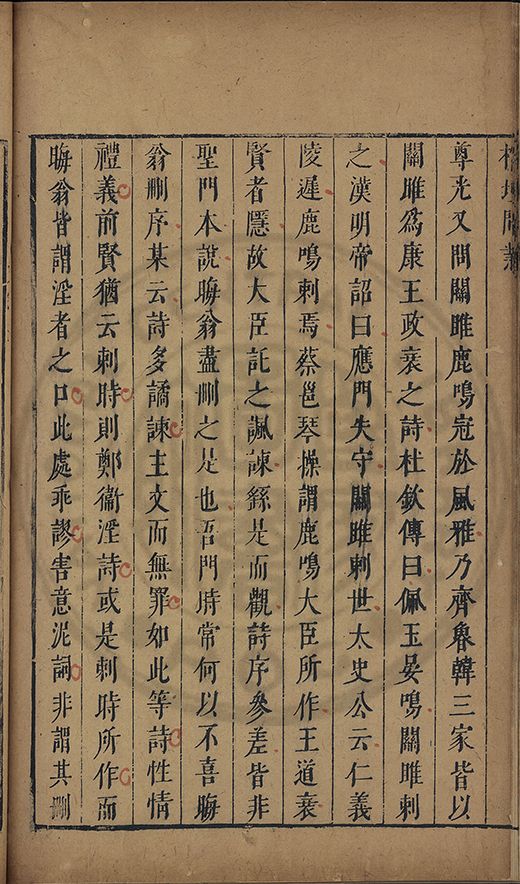 榕壇問業
尊光又問關雎鹿鳴冠於風雅乃齊魯韓三家皆以
關雎為康王政衰之詩杜欽傳曰佩玉晏鳴關雎刺
之漢明帝詔曰應門失守關雎刺世太史公云仁義
陵遲鹿鳴刺焉蔡邕琴操謂鹿鳴大臣所作王道衰
賢者隱故大臣託之諷諫繇是而觀詩序參差皆非
聖門本說晦翁盡刪之是也吾門時常何以不喜晦
翁刪序某云詩多譎諫主文而無罪如此等詩性情
禮義前賢猶云刺時則鄭衞淫詩或是刺時所作而
晦翁皆謂淫者之口此處乖謬害意泥詞非謂其刪